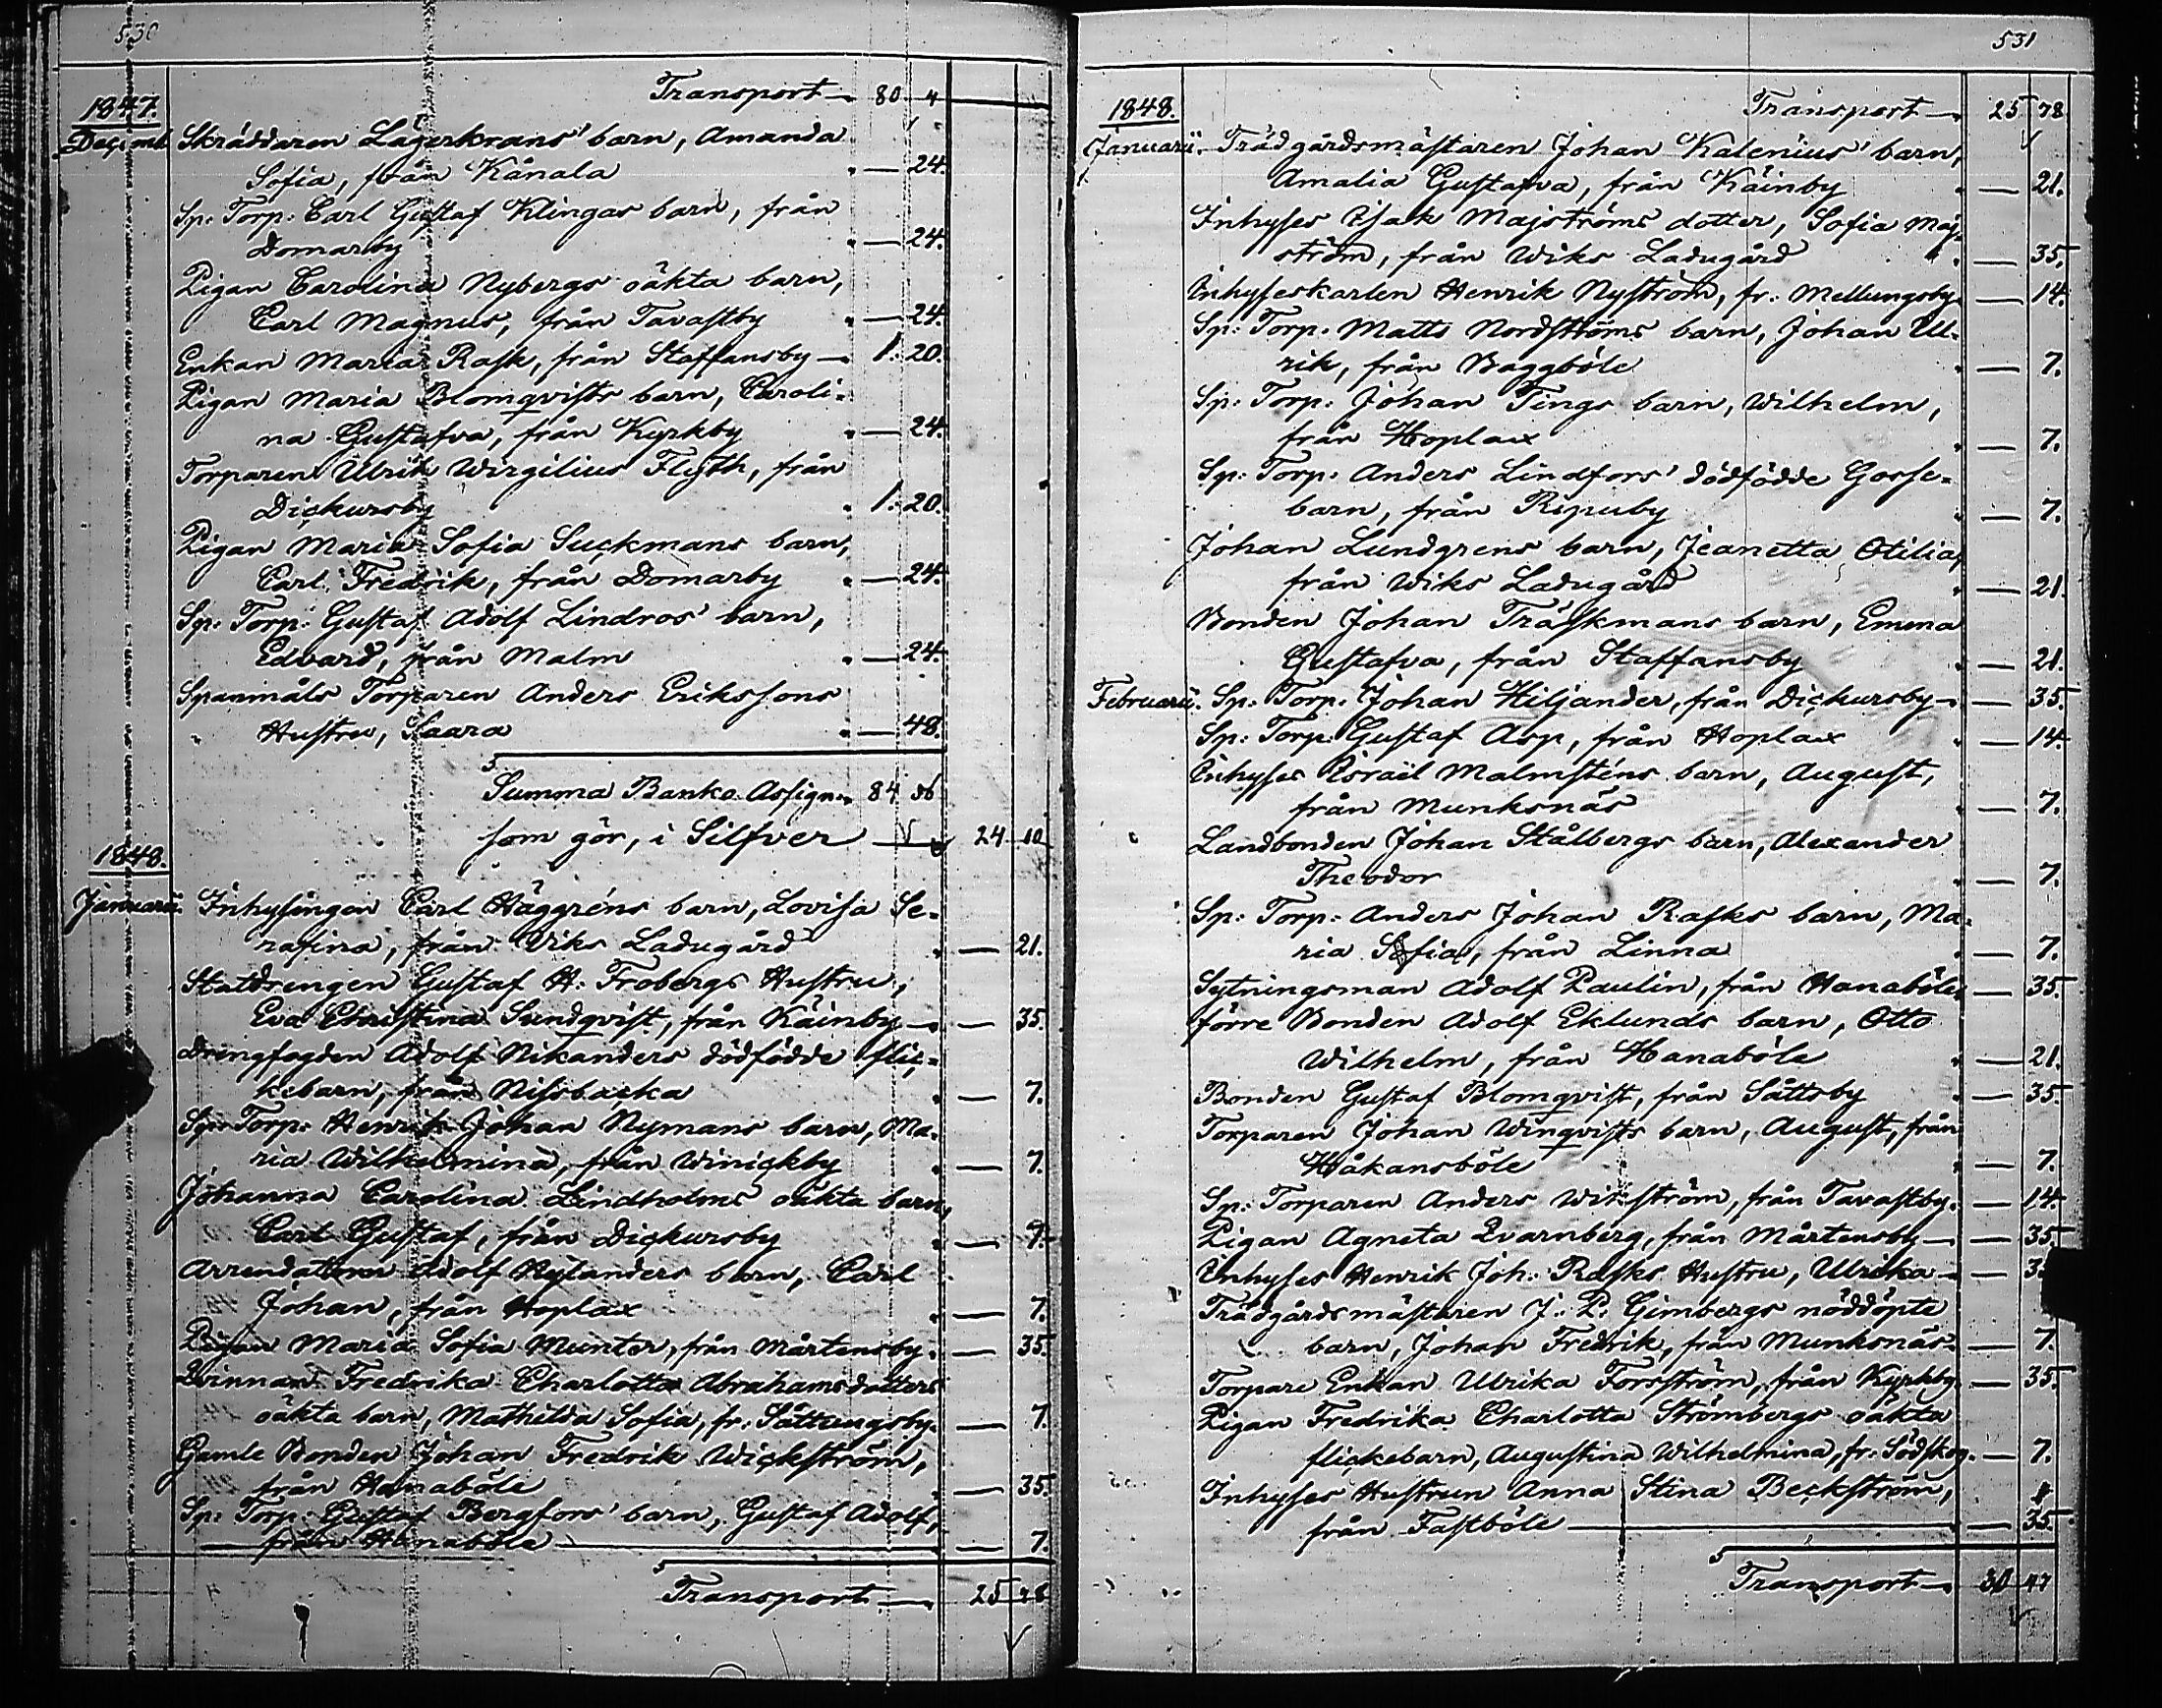 530
Transport — 80 4
1847.
Decemb. Skräddaren Lägerkrans' barn, Amanda
Sofia, från Kånala " — 24.
Sp: Torp: Carl Gustaf Klingas barn, från
Domarby " — 24.
Pigan Carolina Nybergs oäkta barn,
Carl Magnus, från Tavastby " — 24.
Enkan Maria Rask, från Staffansby — 1. 20.
Pigan Maria Blomqvists barn, Caroli-
na Gustafva, från Kyrkby " — 24.
Torparen Ulrik Wirgilius Flyth, från
Dickursby " 1. 20.
Pigan Maria Sofia Suckmans barn,
Carl Fredrik, från Domarby " — 24.
Sp: Torp: Gustaf Adolf Lindros' barn,
Edvard, från Malm " — 24.
Spanmåls Torparen Anders Erikssons
Hustru, Saara " — 48.
Summa Banko Assign. 84 56
som gör, i Silfver — 24 10
1848.
Januarii. Inhysingen Carl Häggréns barn, Lovisa Se-
rafina, från Viks Ladugård " — 21.
Statdrengen Gustaf H. Frobergs Hustru,
Eva Christina Sundqvist, från Käinby — — 35.
Drengfogden Adolf Nikanders dödfödde flic-
kebarn, från Nissbacka " — 7.
Sp: Torp: Henrik Johan Nymans barn, Ma-
ria Wilhelmina, från Winickby " — 7.
Johanna Carolina Lindholms oäkta barn,
Carl Gustaf, från Dickursby " — 7.
Arrendatorn Adolf Nylanders barn, Carl
Johan, från Hoplax " — 7.
Pigan Maria Sofia Munter, från Mårtensby. — 35.
Qvinnan Fredrika Charlotta Abrahamsdotters
oäkta barn, Mathilda Sofia, fr: Sättungsby. — 7.
Gamle Bonden Johan Fredrik Wickström,
från Hanaböle " — 35.
Sp: Torp: Gustaf Bergfors' barn, Gustaf Adolf,
från Hanaböle — 7.
Transport — 25 78
531
1848. Transport — 25 78
Januarii. Trädgårdsmästaren Johan Kalenius' barn,
Amalia Gustafva, från Käinby " — 21.
Inhyses Isak Majströms dotter, Sofia Maj-
ström, från Wiks Ladugård " — 35.
Inhyseskarlen Henrik Nyström, fr: Mellungsby. — 14.
Sp: Torp: Matts Nordströms barn, Johan Ul-
rik, från Baggböle " — 7.
Sp: Torp: Johan Tings barn, Wilhelm,
från Hoplax " — 7.
Sp: Torp: Anders Lindfors' dödfödde Gosse-
barn, från Ripuby " — 7.
Johan Lundgrens barn, Jeanetta Otilia,
från Wiks Ladugård " — 21.
Bonden Johan Träskmans barn, Emma
Gustafva, från Staffansby " — 21.
Februarii. Sp: Torp: Johan Hiljander, från Dickursby — — 35.
Sp: Torp: Gustaf Asp, från Hoplax " — 14.
Inhyses Israël Malmsténs barn, August,
från Munksnäs " — 7.
Landbonden Johan Stålbergs barn, Alexander
Theodor " — 7.
Sp: Torp: Anders Johan Rasks barn, Ma-
ria Sofia, från Linna " — 7.
Sytningsman Adolf Paulin, från Hanaböle. — 35.
förre Bonden Adolf Eklunds barn, Otto
Wilhelm, från Hanaböle " — 21.
Bonden Gustaf Blomqvist, från Sättsby " — 35.
Torparen Johan Winqvists barn, August, från
Håkansböle " — 7.
Sp: Torparen Anders Wikström, från Tavastby. — 14.
Pigan Agneta Qvarnberg, från Mårtensby — — 35.
Inhyses Henrik Joh: Rasks Hustru, Ulrika — —
Trädgårdsmästaren J. P. Gimbergs nöddöpte
barn, Johan Fredrik, från Munksnäs. — 7.
Torpare Enkan Ulrika Forsström, från Kyrkby. — 35.
Pigan Fredrika Charlotta Strömbergs oäkta
flickebarn, Augustina Wilhelmina, fr: Södskog. — 7.
Inhyses Hustrun Anna Stina Beckström,
från Fastböle — 35.
Transport — 30 47